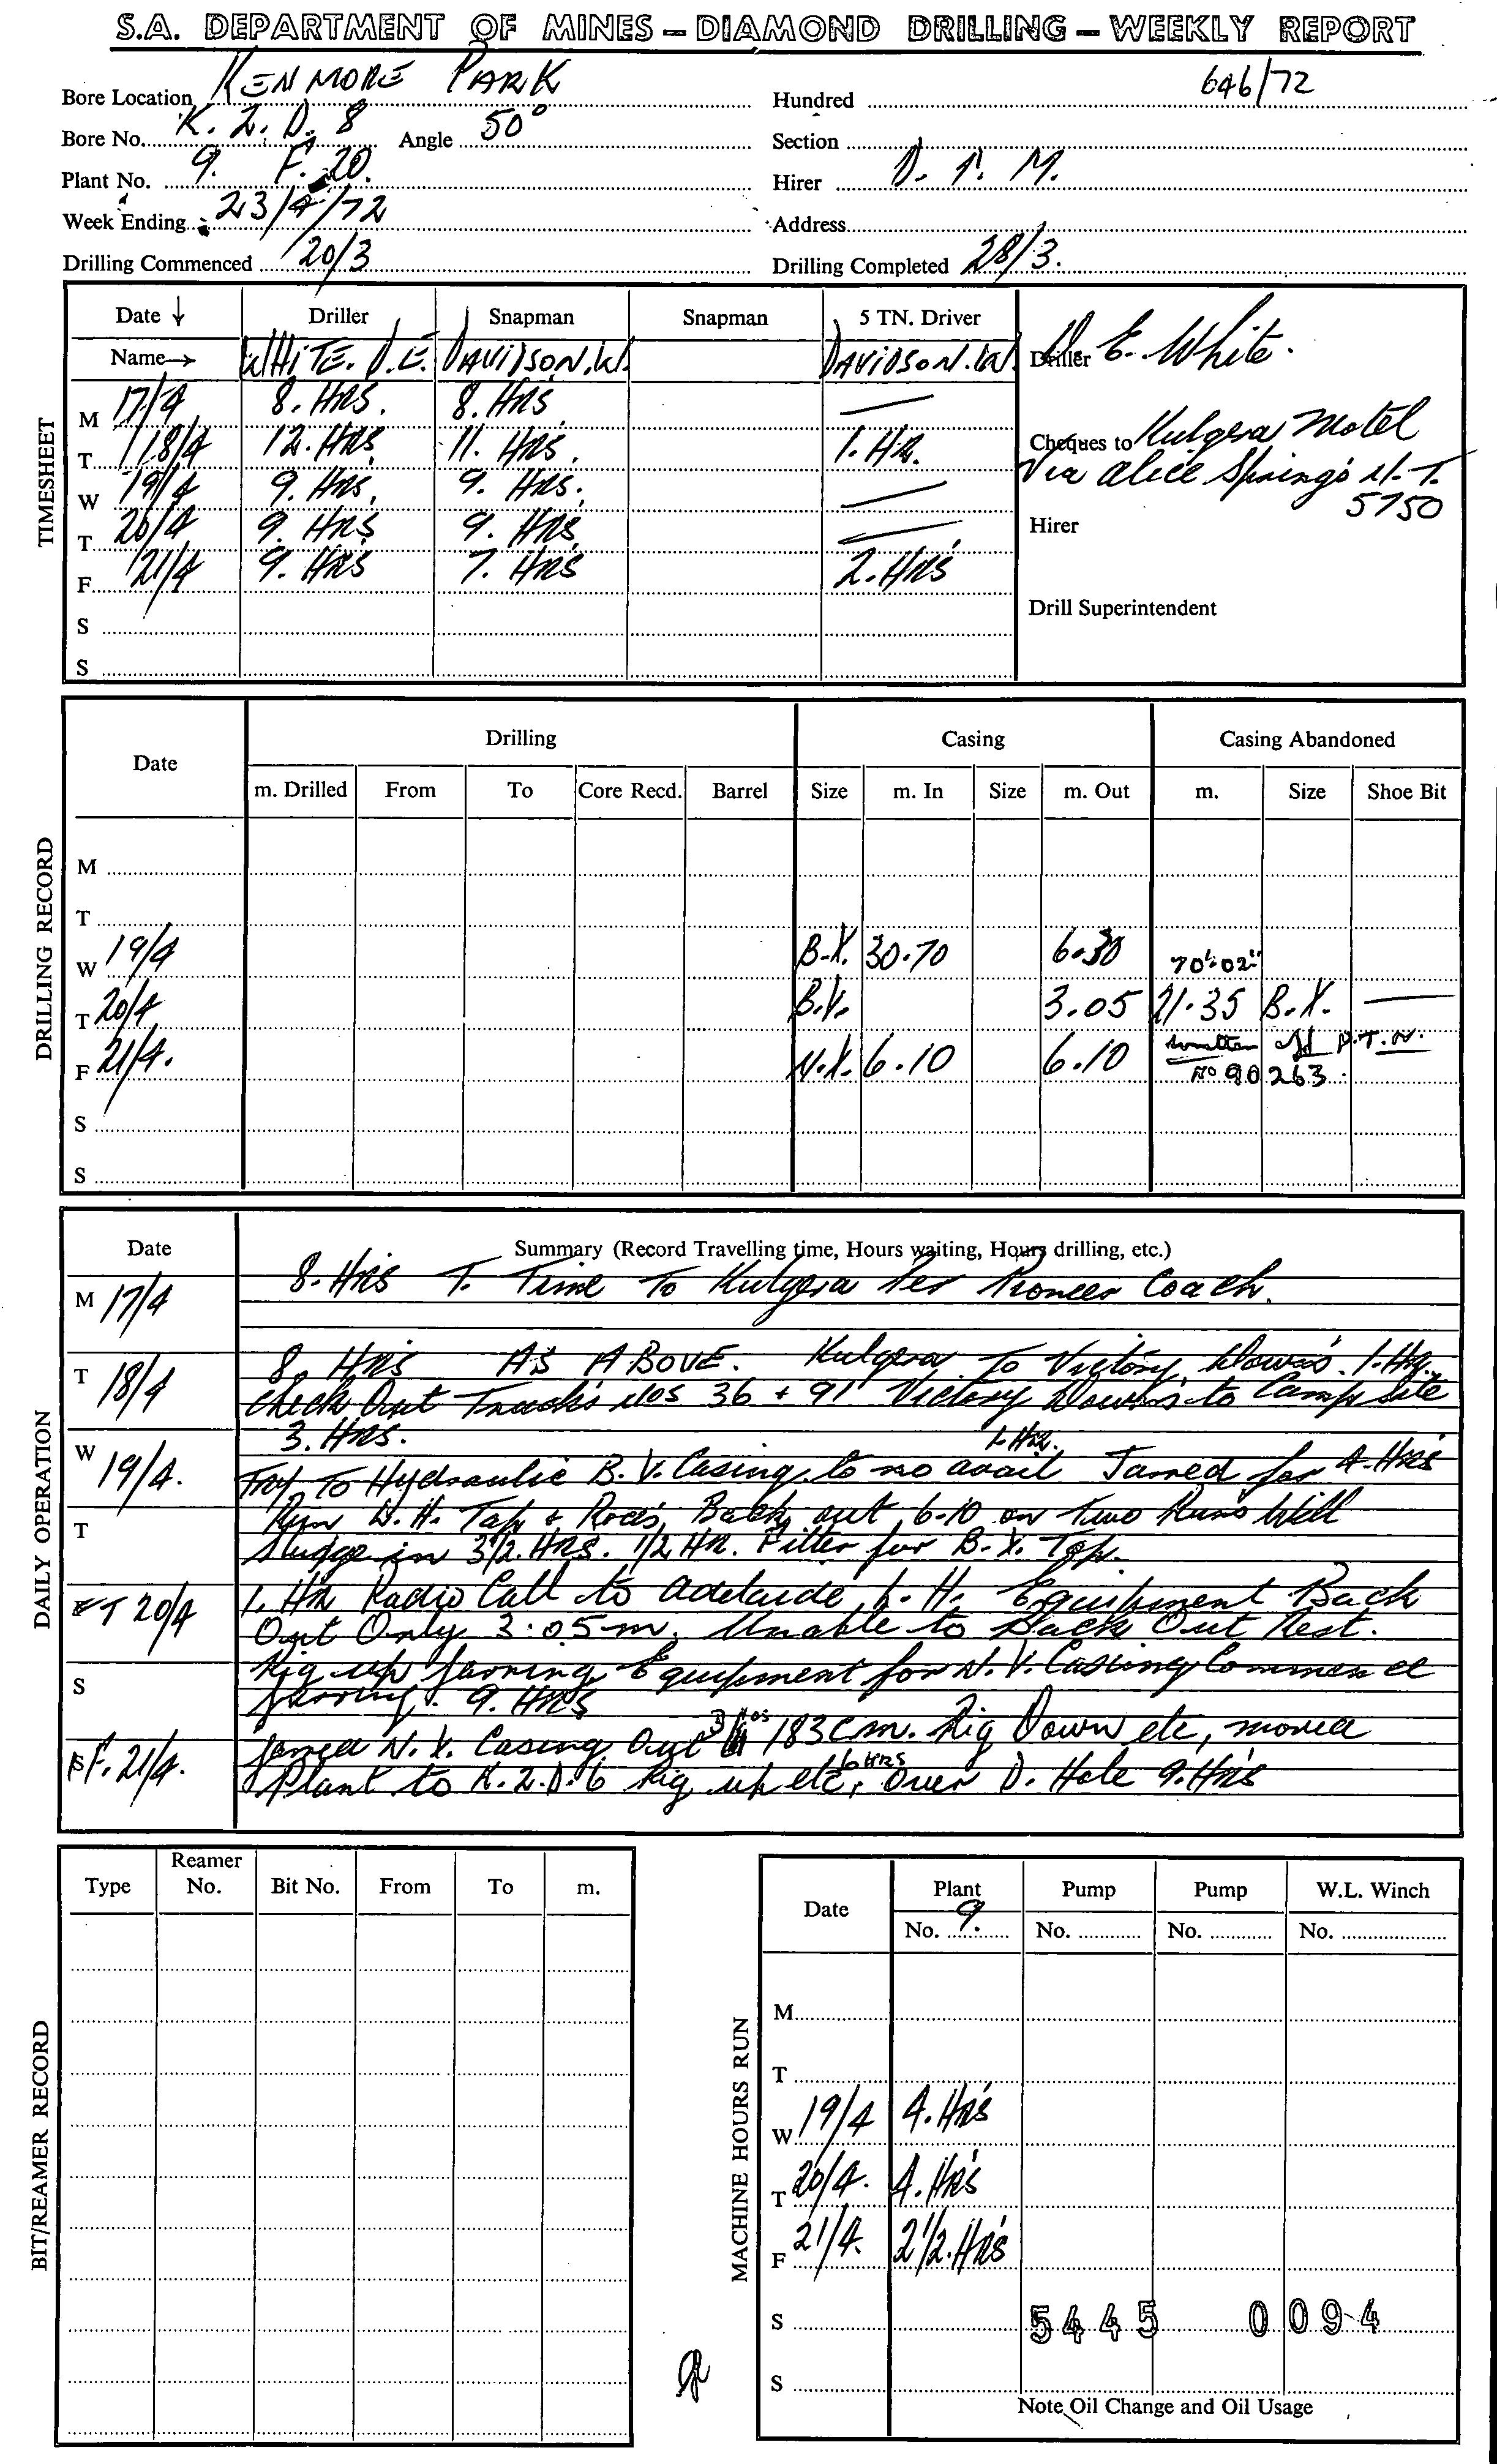 S.A. DEPARTMENT OF MINES – DIAMOND DRILLING – WEEKLY REPORT
Bore Location KENMORE PARK 646/72
Hundred
Bore No. K. Z. D. 8 Angle 50°
Section
Plant No. 9. F. 20.
Hirer D. P. M.
Week Ending 23/4/72
Address
Drilling Commenced 20/3
Drilling Completed 28/3.
TIMESHEET
Date ↓ Driller Snapman Snapman 5 TN. Driver
Name→ WHITE. D.E. DAVIDSON.W. DAVIDSON.W.
M 17/4 8. HRS. 8. HRS —
T 18/4 12. HRS 11. HRS. 1. HR.
W 19/4 9. HRS. 9. HRS. —
T 20/4 9. HRS 9. HRS —
F 21/4 9. HRS 7. HRS 2. HRS
S
S
Driller D. E. White.
Cheques to Kulgera Motel
Via Alice Springs N.T.
5750
Hirer
Drill Superintendent
DRILLING RECORD
Date Drilling Casing Casing Abandoned
m. Drilled From To Core Recd. Barrel Size m. In Size m. Out m. Size Shoe Bit
M
T
W 19/4 B.X. 30.70 6.30 70'.02"
T 20/4 B.X. 3.05 21.35 B.X. —
F 21/4. N.X. 6.10 6.10 written off D.T.N.
No 90263.
S
S
DAILY OPERATION
Date Summary (Record Travelling time, Hours waiting, Hours drilling, etc.)
M 17/4 8. HRS T. Time To Kulgera Per Pioneer Coach.
T 18/4 8. HRS AS ABOVE. Kulgera To Victory Downs. 1. HR.
Check Out Trucks Nos 36 + 91 Victory Downs to Camp site
3. HRS. 1. HR.
W 19/4. Try To Hydraulic B.X. Casing to no avail Jarred for 4. HRS
T Run L.H. Tap & Rods Back out 6.10 on Two Runs Well
Sludge in 3 1/2. HRS. 1/2 HR. Fitter for B.X. Tap.
T 20/4 1. HR Radio Call to Adelaide L.H. Equipment Back
Out Only 3.05m. Unable to Back Out Rest.
S Rig up Jarring Equipment for N.X. Casing Commence
Jarring. 9. HRS
F. 21/4. Jarred N.X. Casing Out 183cm. Rig Down etc, moved
6 HRS
Plant to K.Z.D.6 Rig up etc, Over D. Hole 9. HRS
BIT/REAMER RECORD
Type Reamer No. Bit No. From To m.
MACHINE HOURS RUN
Date Plant Pump Pump W.L. Winch
No. 9. No. No. No.
M
T
W 19/4 4. HRS
T 20/4. 4. HRS
F 21/4. 2 1/2. HRS
S 5445 0094
S
Note Oil Change and Oil Usage